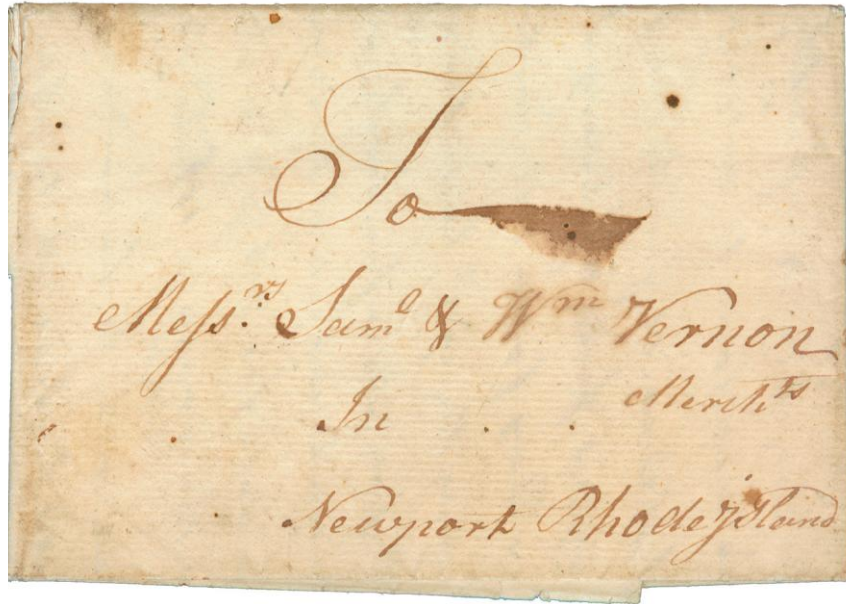 To
Messrs. Saml & Wm Vernon
Merchts
In
Newport Rhode Island